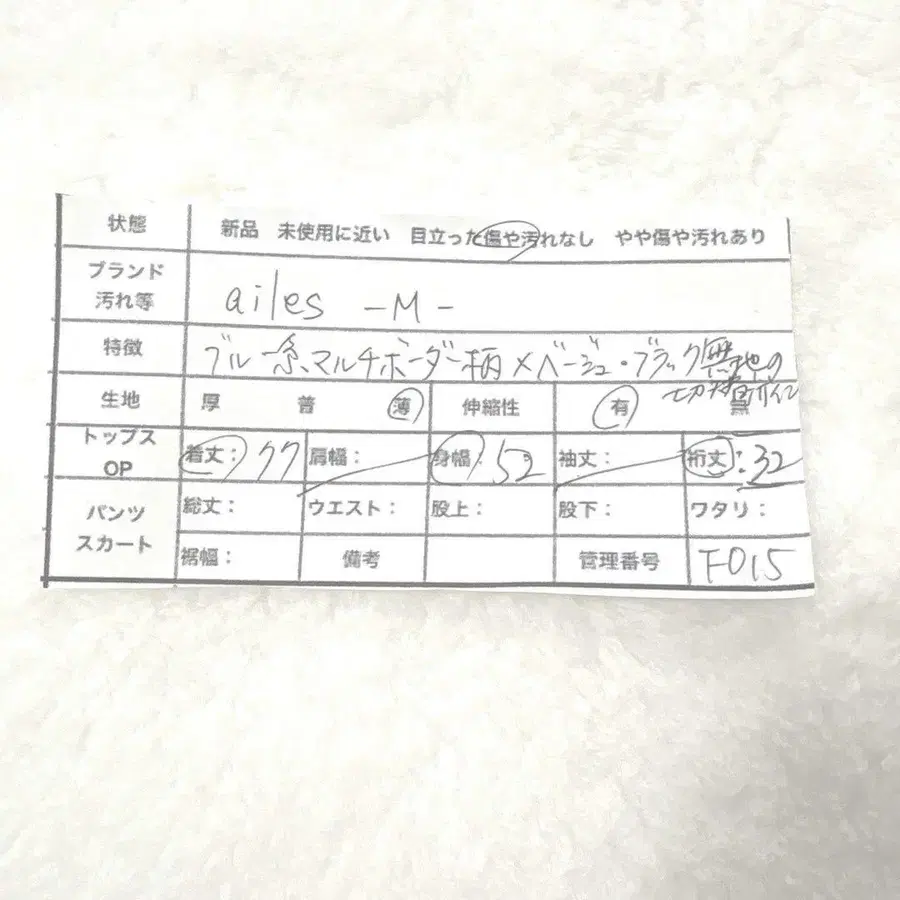 状態 新品 未使用に近い 目立った傷や汚れなし やや傷や汚れあり
ブランド
汚れ等 ailes -M-
特徴 ブルー系マルチボーダー柄×ベージュ・ブラック無地の
切替
生地 厚 普 薄 伸縮性 有 無
トップス
OP 着丈: 77 肩幅: 身幅: 52 袖丈: 裄丈: 32
パンツ
スカート 総丈: ウエスト: 股上: 股下: ワタリ:
裾幅: 備考 管理番号 F015